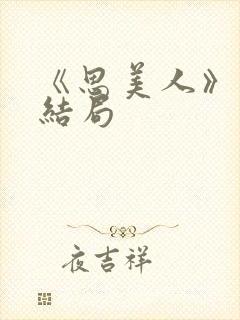 《思美人》
結局
夜吉祥